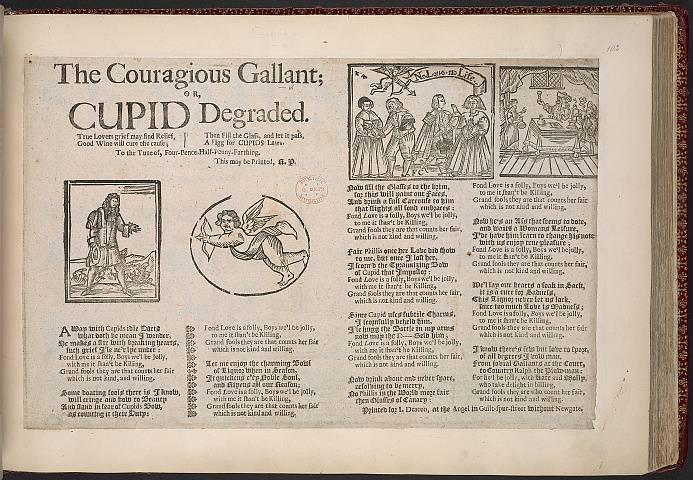 102
The Couragious Gallant;
OR,
CUPID Degraded.
True Lovers grief may find Relief,
Good Wine will cure the cause;
Then Fill the Glass, and let it pass,
A Figg for CUPIDS Laws.
To the Tune of, Four-Pence-Half-Penny-Farthing.
This may be Printed, R. P.
No Love no Life
AWay with Cupids idle Darts
what doth he mean I wonder,
He makes a stir with bleeding hearts,
such grief I'le
Fond Love is a folly, Boys we'l be jolly,
with me it shan't be Killing,
Grand fools they are that counts her fair
which is not kind, and willing.
Some doating fools there is I know,
will cringe and bow to Beauty
And stand in fear of Cupids Bow,
as counting it their Duty:
Fond Love is a folly, Boys we'l be jolly,
to me it shan't be Killing,
Grand fools they are that counts her fair
which is not kind and willing.
Let me enjoy the charming Bowl
of Liquor when in Season,
It quickens e'ry Noble Soul,
and Ripens all our Reason:
Fond Love is a folly, Boys we'l be jolly,
with me it shan't be Killing,
Grand fools they are that counts her fair
which is not kind and willing.
Now fill the Glasses to the brim,
for this will paint our Faces,
And drink a full Carouse to him
that slights all fond embraces:
Fond Love is a folly, Boys we'l be jolly,
to me it shan't be Killing,
Grand fools they are that counts her fair,
which is not kind and willing.
Fair Phillis once her Love did show
to me, but once I lost her,
I scorn'd the Tyranizing Bow
of Cupid that Impostor:
Fond Love is a folly, Boys we'l be jolly,
with me it shan't be Killing,
Grand fools they are that counts her fair,
which is not kind and willing.
Since Cupid uses subtile Charms,
I scornfully beheld him,
I hugg the Bottle in my arms
now hugg the D—— Geld him;
Fond Love is a folly, Boys we'l be jolly,
to me it shan't be Killing,
Grand fools they are that counts her fair,
which is not kind and willing.
Now drink about and never spare,
resolving to be merry,
No Phillis in the World more fair
then Glasses of Canary:
Fond Love is a folly, Boys we'l be jolly,
to me it shan't be Killing,
Grand fools they are that counts her fair
which is not kind and willing.
Now he's an Ass that seems to dote,
and waits a Womans Leisure,
I'de have him learn to change his note
with us enjoy true pleasure;
Fond Love is a folly, Boys we'l be jolly,
to me it shan't be Killing,
Grand fools they are that counts her fair,
which is not kind and willing.
We'l lay our hearts a soak in Sack,
it is a cure for Sadness,
This Liquor never let us lack,
since too much Love is Madness:
Fond Love is a folly, Boys we'l be jolly,
to me it shan't be Killing,
Grand fools they are that counts her fair
which is not kind and willing.
I know there's few but love to
of all degrees I vow man,
From jovial Gallants at the Court,
to Country Ralph the Plow-man:
For he be jolly, with Kate and Molly,
who take delight in billing,
Grand fools they are who counts her fair,
which is not kind and willing.
Printed for I. Deacon, at the Angel in Guilt-spur-street without Newgate.